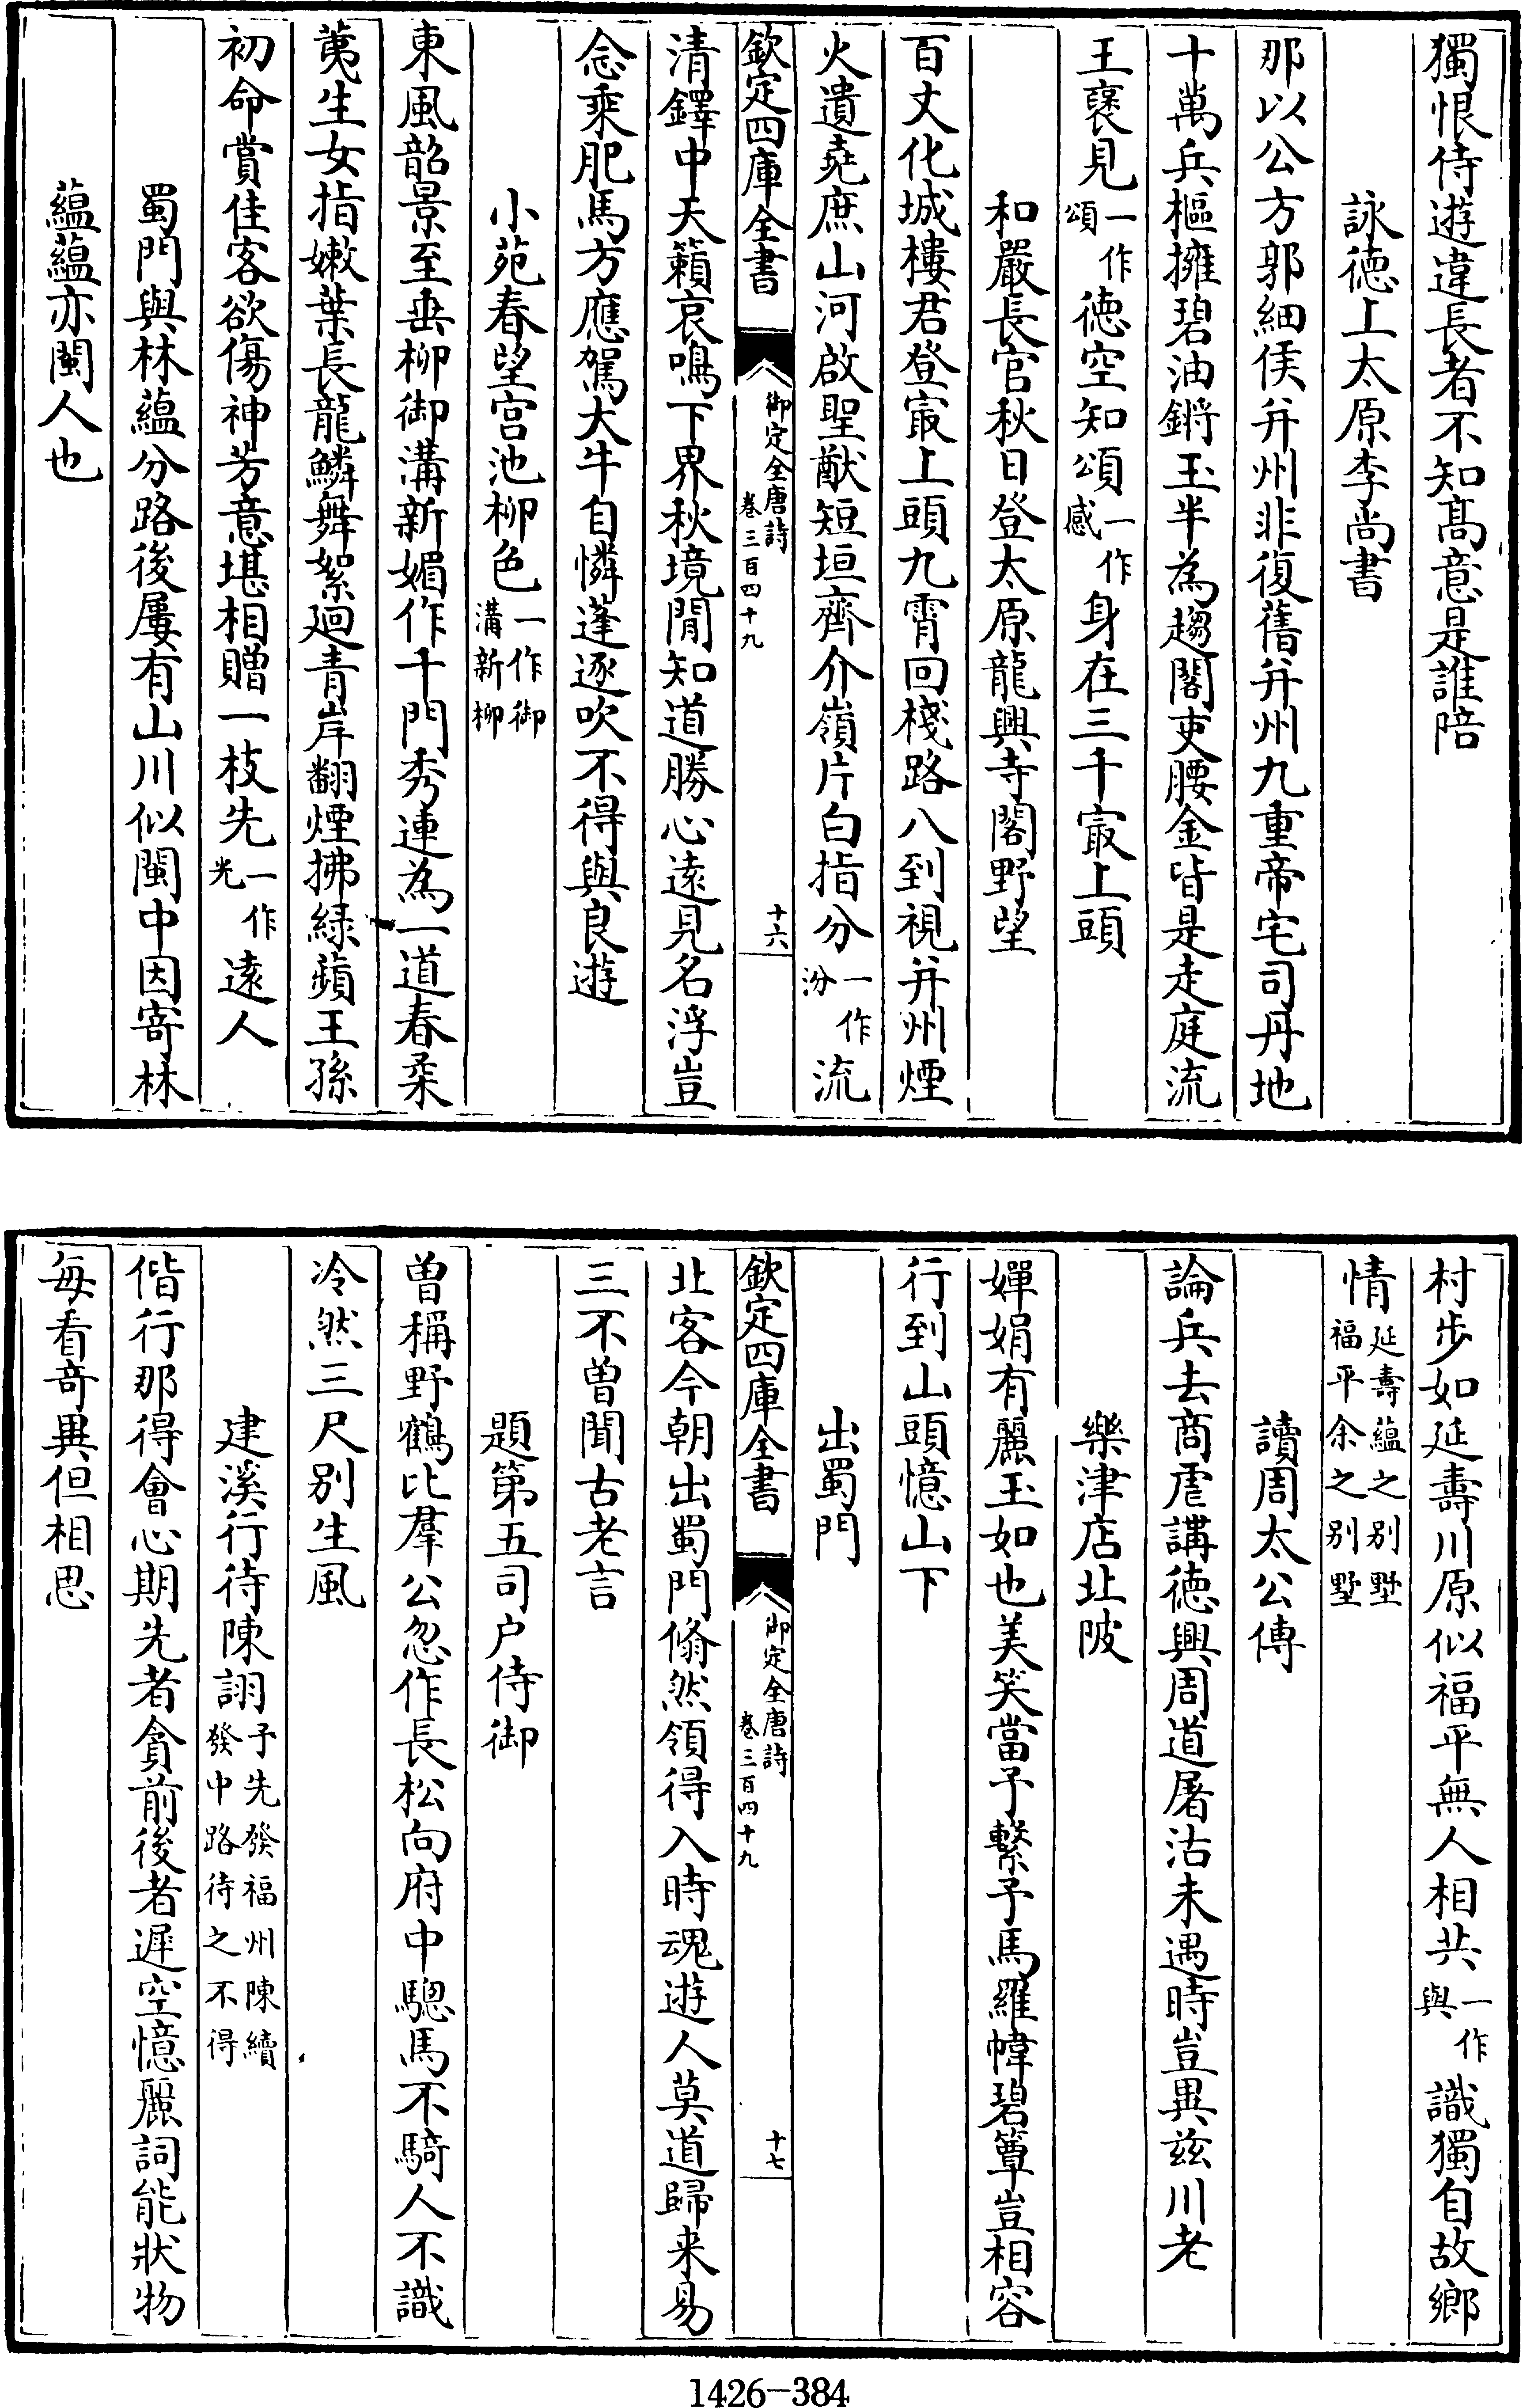 獨恨侍遊違長者不知髙意是誰陪
詠德上太原李尚書
那以公方郭細侯并州非復舊并州九重帝宅司丹地
十萬兵樞擁碧油鏘玉半為趨閣吏腰金皆是走庭流
王襃見一作頌德空知頌一作感身在三千㝡上頭
和嚴長官秋日登太原龍興寺閣野望
百丈化城樓君登㝡上頭九霄回棧路八到視并州煙
火遺堯庶山河啟聖猷短垣齊介嶺片白指分一作汾流
欽定四庫全書 御定全唐詩 卷三百四十九 十六
清鐸中天籟哀鳴下界秋境閒知道勝心遠見名浮豈
念乘肥馬方應駕大牛自憐蓬逐吹不得與良遊
小苑春望宮池柳色一作御溝新柳
東風韶景至垂柳御溝新媚作千門秀連為一道春柔
荑生女指嫩葉長龍鱗舞絮迴青岸翻煙拂綠蘋王孫
初命賞佳客欲傷神芳意堪相贈一枝先一作光遠人
蜀門與林蘊分路後屢有山川似閩中因寄林
蘊蘊亦閩人也
村步如延壽川原似福平無人相共一作與識獨自故鄉
情延壽蘊之别墅福平余之别墅
讀周太公傳
論兵去商虐講德興周道屠沽未遇時豈異兹川老
樂津店北陂
嬋娟有麗玉如也美笑當予繫予馬羅幃碧簟豈相容
行到山頭憶山下
出蜀門
欽定四庫全書 御定全唐詩 卷三百四十九 十七
北客今朝出蜀門翛然領得入時魂遊人莫道歸来易
三不曽聞古老言
題第五司户侍御
曽稱野鶴比羣公忽作長松向府中驄馬不騎人不識
冷然三尺别生風
建溪行待陳詡予先發福州陳續發中路待之不得
偕行那得會心期先者貪前後者遲空憶麗詞能狀物
每看竒異但相思
1426-384